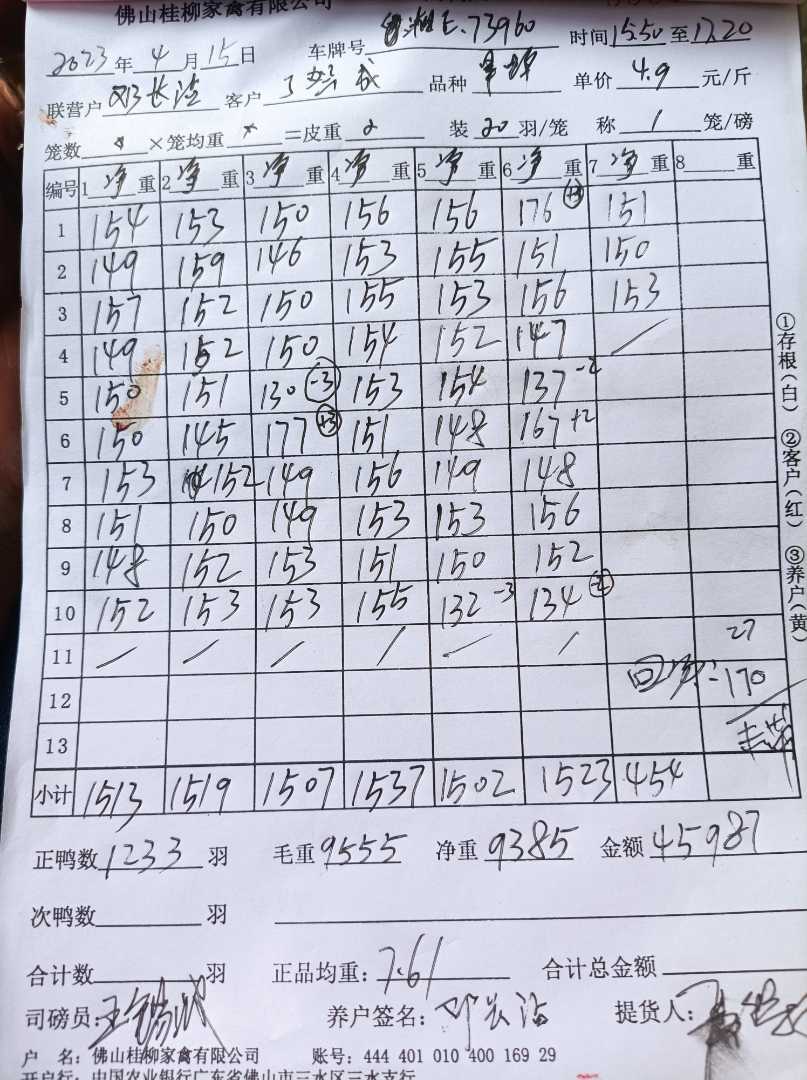 佛山桂柳家禽有限公司
2023年4月15日 车牌号 湘E.73960 时间15.50至17.20
联营户 邓长洁 客户 品种 单价 4.9 元/斤
笼数 × 笼均重 = 皮重 装 20 羽/笼 称 1 笼/磅
编号 1 净 重 2 净 重 3 净 重 4 净 重 5 净 重 6 净 重 7 净 重 8 重
1 154 153 150 156 156 176 +3 151
2 149 159 146 153 155 151 150
3 157 152 150 155 153 156 153
4 149 152 150 154 152 147 /
5 150 151 130 -3 153 154 137 -2
6 150 145 177 +3 151 148 167 +2
7 153 152 149 156 149 148
8 151 150 149 153 153 156
9 148 152 153 151 150 152
10 152 153 153 155 132 -3 134 -2
11 / / / / / / 27
12 -170
13
小计 1513 1519 1507 1537 1502 1523 454
正鸭数 1233 羽 毛重 9555 净重 9385 金额 45987
次鸭数 羽
合计数 羽 正品均重: 7.61 合计总金额
司磅员: 养户签名: 邓长洁 提货人:
户 名: 佛山桂柳家禽有限公司 账号: 444 401 010 400 169 29
开户行: 中国农业银行广东省佛山市三水区三水支行
①存根(白) ②客户(红) ③养户(黄)